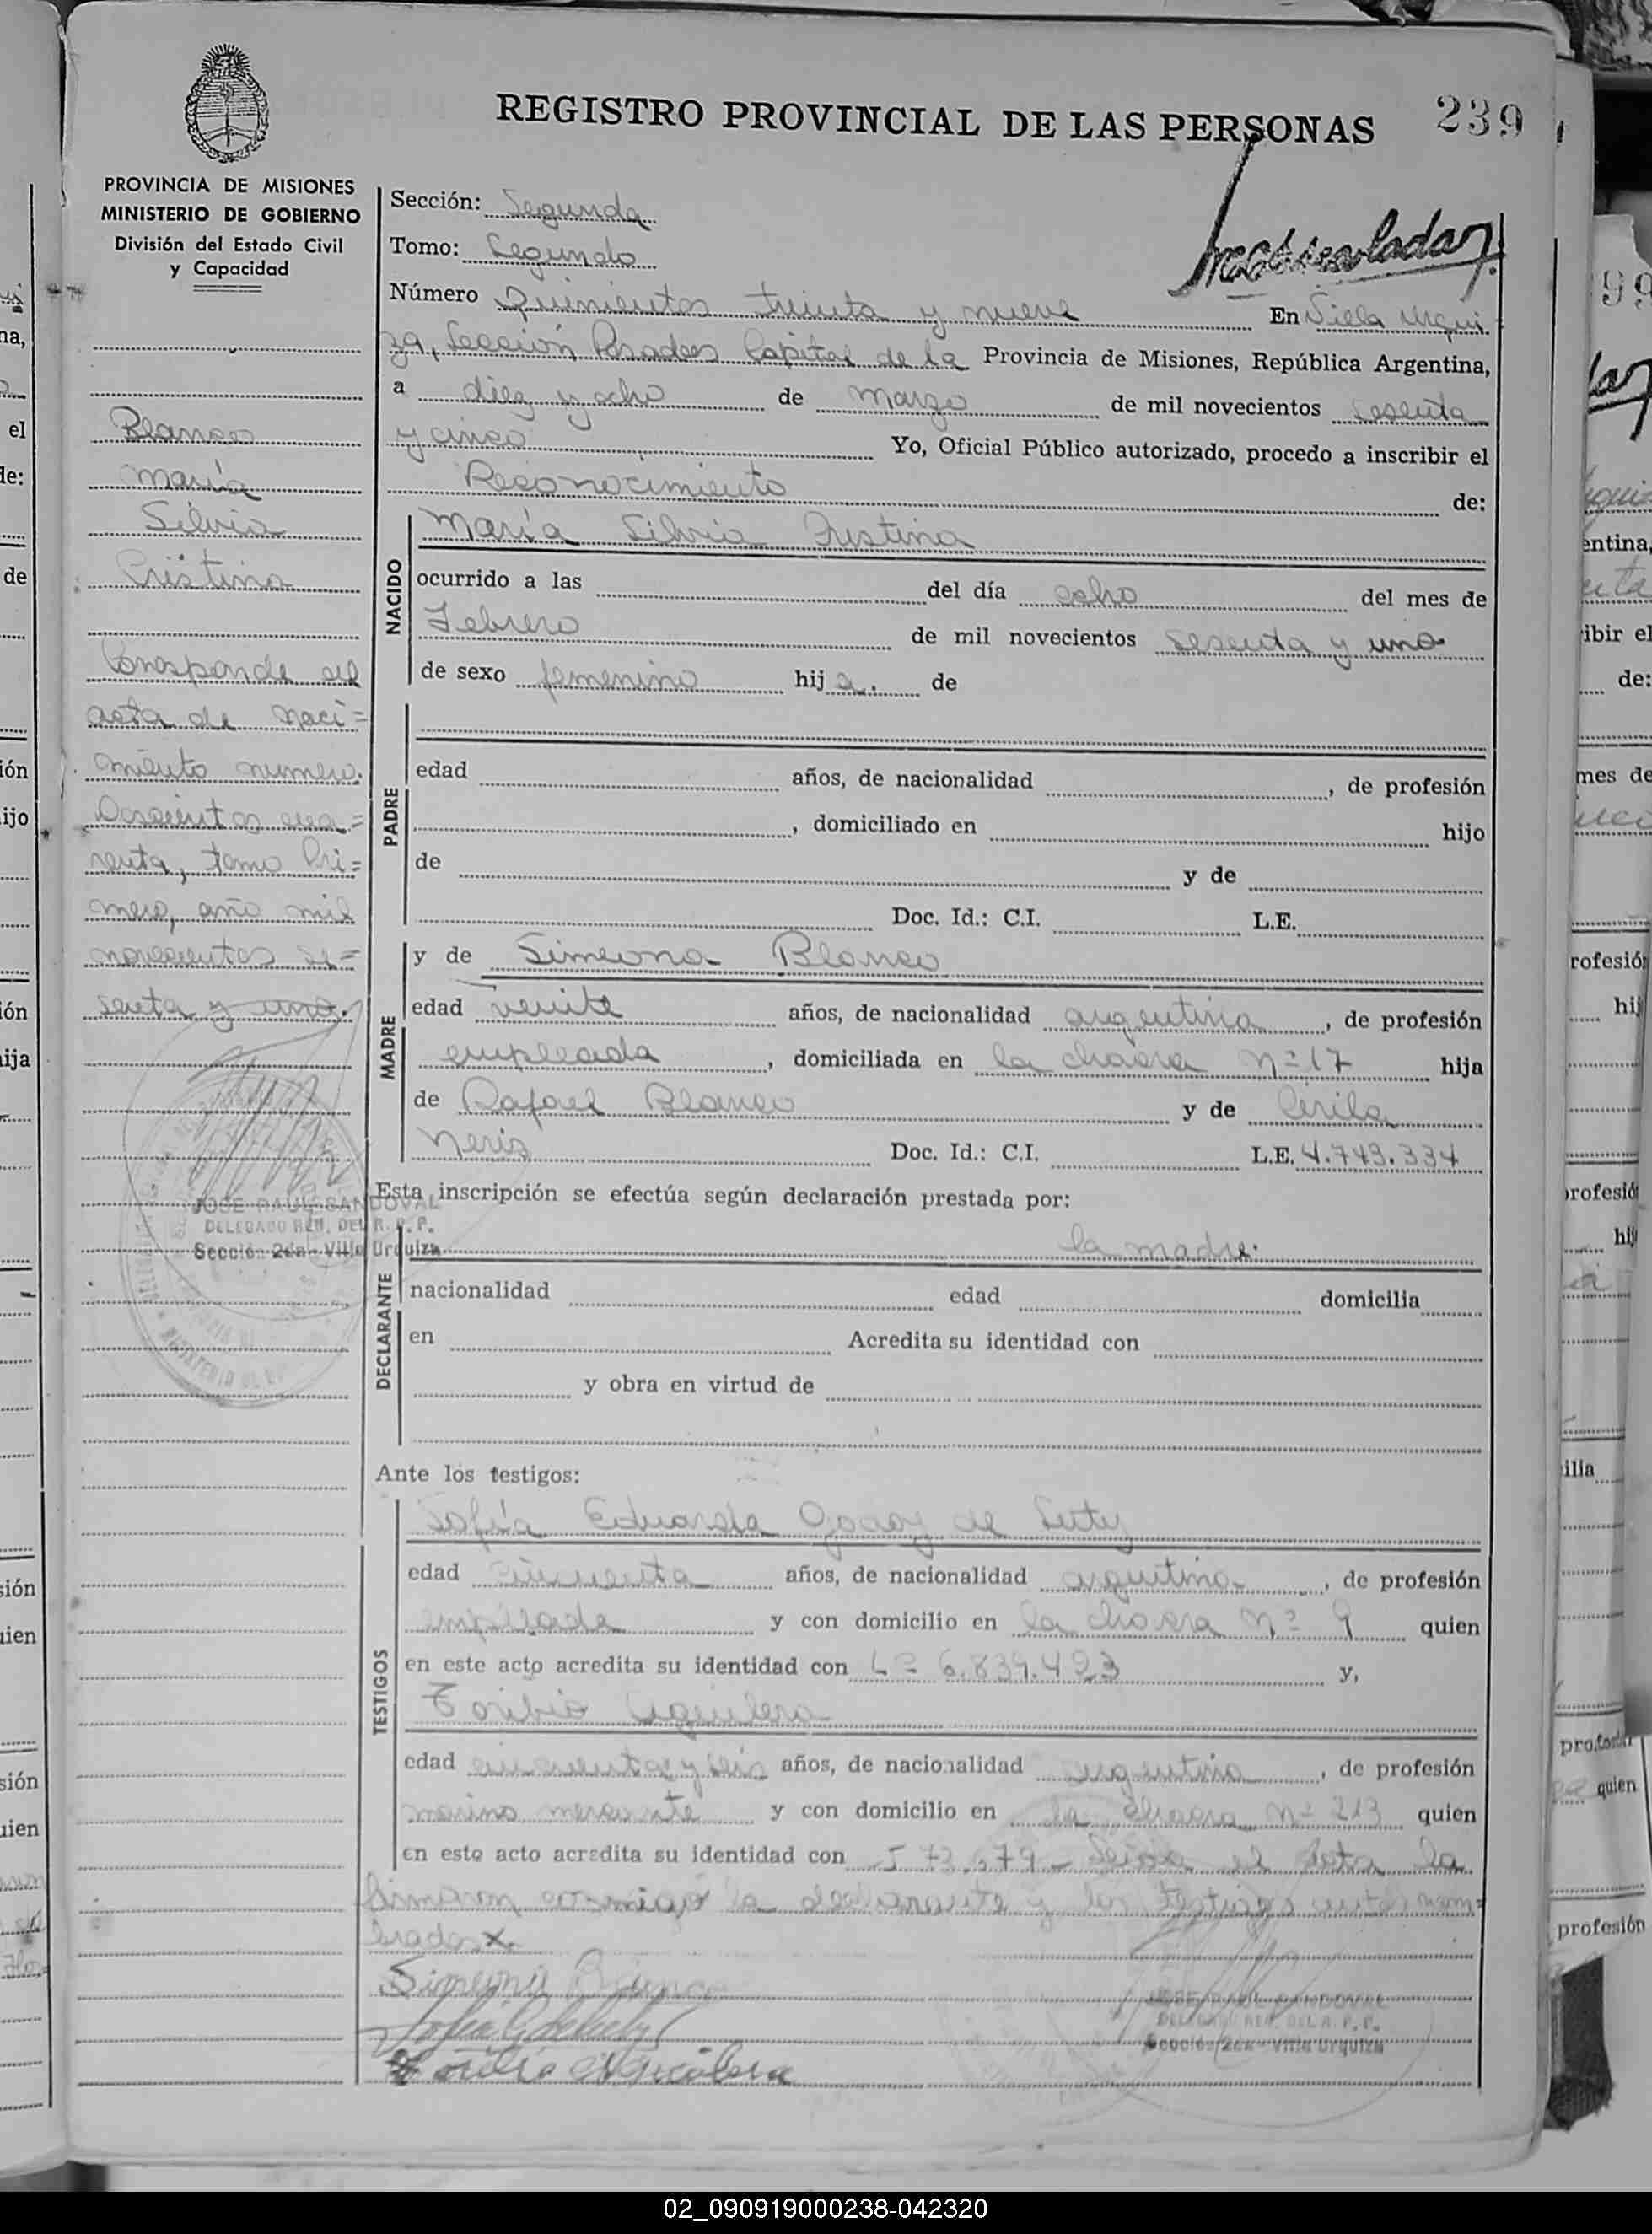 REGISTRO PROVINCIAL DE LAS PERSONAS 239
PROVINCIA DE MISIONES
MINISTERIO DE GOBIERNO
División del Estado Civil
y Capacidad
Blanco
María
Silvia
Cristina
Corresponde al
acta de naci=
miento numero
Doscientos cua=
renta, tomo Pri=
mero, año mil
novecientos se=
senta y uno.
JOSE RAUL SANDOVAL
DELEGADO REG. DEL R. P. P.
Sección 2da - Villa Urquiza
Sección: Segunda
Tomo: Segundo
Número Quinientos treinta y nueve En Villa Urqui
za, Sección Posadas Capital de la Provincia de Misiones, República Argentina,
a diez y ocho de marzo de mil novecientos sesenta
y cinco Yo, Oficial Público autorizado, procedo a inscribir el
Reconocimiento de:
NACIDO
María Silvia Cristina
ocurrido a las del día ocho del mes de
Febrero de mil novecientos sesenta y uno
de sexo femenino hij a. de
PADRE
edad años, de nacionalidad , de profesión
, domiciliado en hijo
de y de
Doc. Id.: C.I. L.E.
MADRE
y de Simeona Blanco
edad veinte años, de nacionalidad argentina , de profesión
empleada , domiciliada en la chacra Nº 17 hija
de Rafael Blanco y de Cirila
Neris Doc. Id.: C.I. L.E. 4.749.334
Esta inscripción se efectúa según declaración prestada por:
DECLARANTE
la madre.
nacionalidad edad domicilia
en Acredita su identidad con
y obra en virtud de
Ante los testigos:
TESTIGOS
Sofía Eduarda Godoy de
edad cincuenta años, de nacionalidad argentina , de profesión
empleada y con domicilio en la chacra Nº 9 quien
en este acto acredita su identidad con L= 6.839.493 y,
Toribio Aguilera
edad cincuenta y seis años, de nacionalidad argentina , de profesión
marino mercante y con domicilio en la chacra Nº 213 quien
en este acto acredita su identidad con Leida el Acta la
firmaron conmigo la declarante y los testigos antes nom=
brados
Simeona Blanco
Toribio Aguilera
JOSE RAUL SANDOVAL
DELEGADO REG. DEL R. P. P.
Sección 2da - Villa Urquiza
02_090919000238-042320